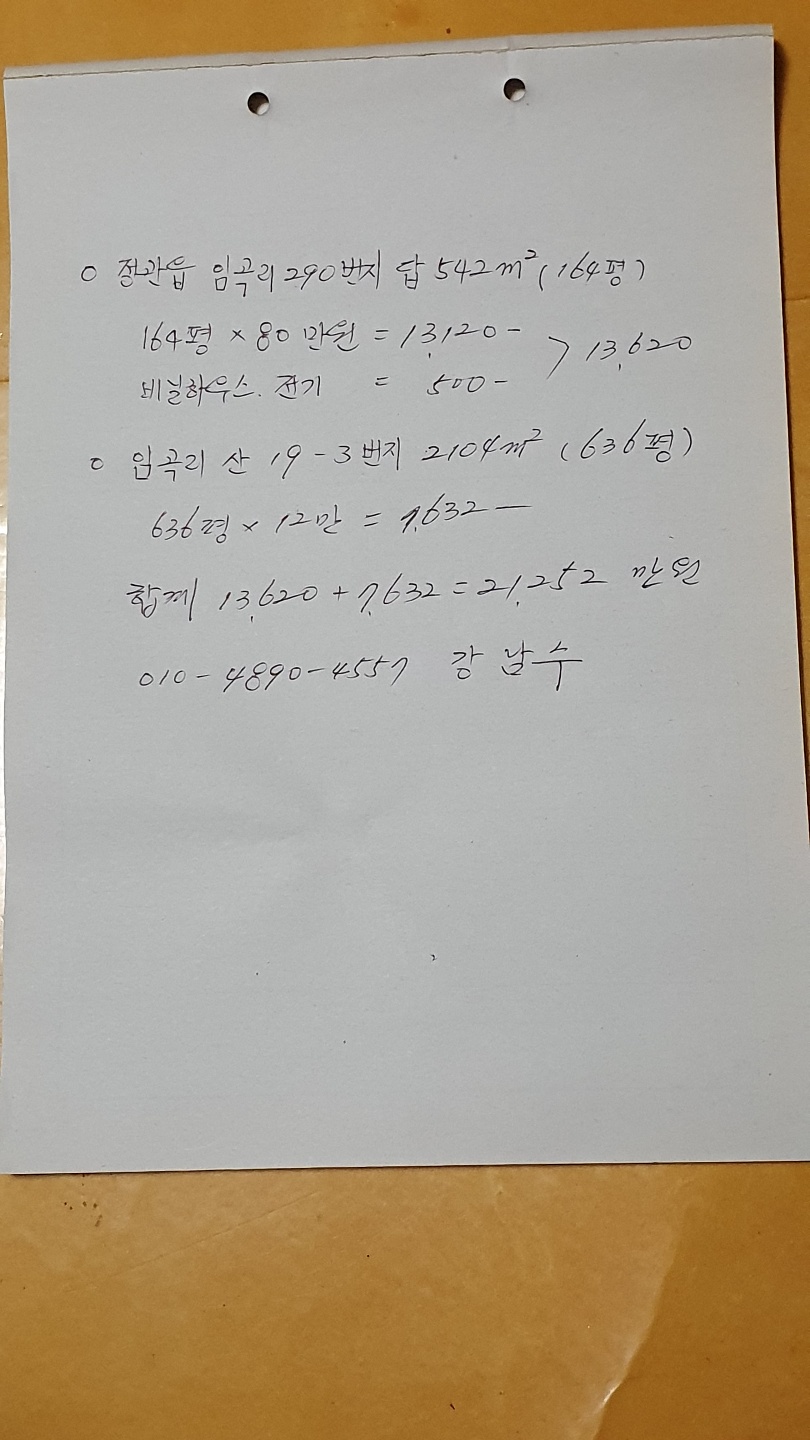 ○ 정관읍 임곡리 290번지 답 542m² (164평)
164평 × 80만원 = 13,120 -
비닐하우스. 전기 = 500 - > 13,620
○ 임곡리 산 19-3번지 2104m² (636평)
636평 × 12만 = 7,632 —
합계 13,620 + 7,632 = 21,252 만원
010-4890-4557 강남수